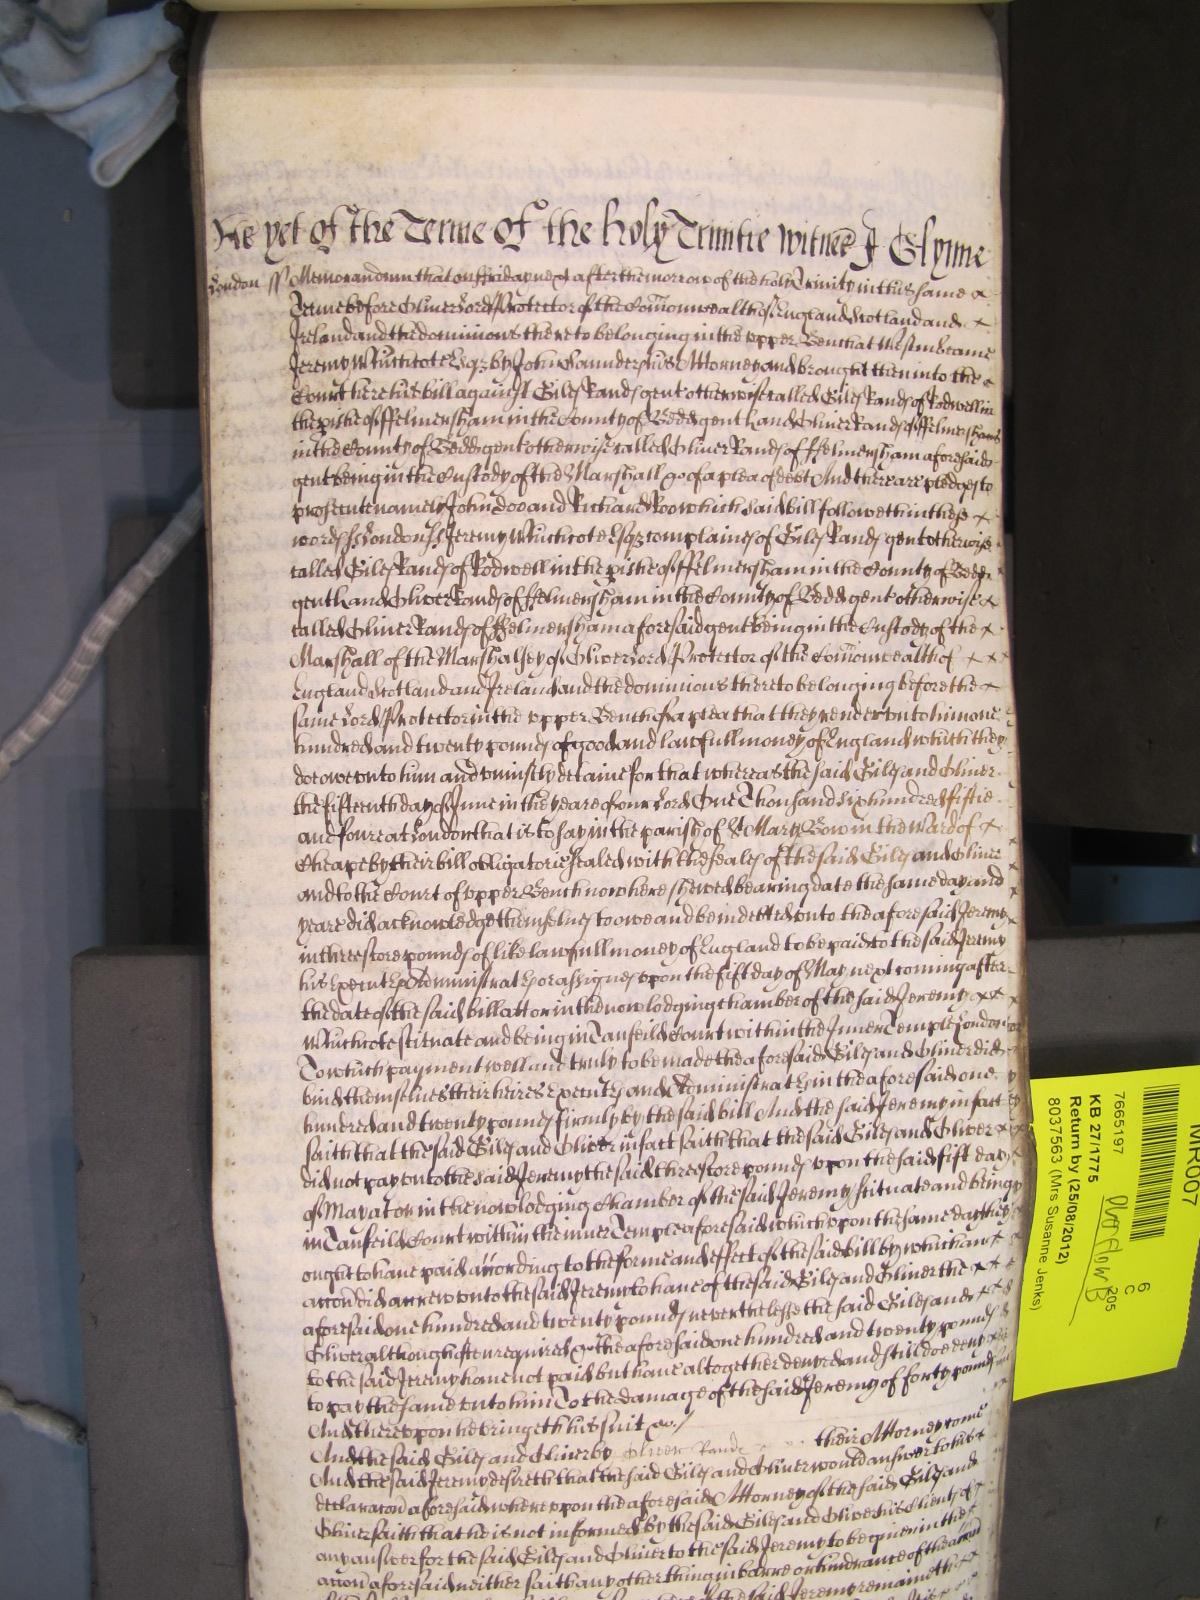 As yet of the Terme of the holy Trinitie witnes J Glynne
London ss Memorandum that on Friday next after the morrow of the holy Trinity in this same
Terme before Oliver Lord Protector of the Comonwealth of England Scotland and
Ireland and the dominions thereto belonging in the upper Bench at Westm came
Jeremy Whichcote Esqr by John Saunders his Attorney and brought then into the
Court here his bill against Giles Rands gent otherwise called Giles Rands of Rodwell in
the pishe of ffelmersham in the County of Bedd gent and Oliver Rands of ffelmersham
in the County of Bedd gent otherwise called Oliver Rands of ffelmersham aforesaid
gent being in the Custody of the Marshall &c of a plea of debt And there are pledges to
prosecute namely John Doo and Richard Roo which said bill followeth in these
words ss London ss Jeremy Whichcote Esqr complaines of Giles Rands gent otherwise
called Giles Rands of Rodwell in the pishe of ffelmersham in the County of Bedd
gent and Oliver Rands of ffelmersham in the County of Bedd gent otherwise
called Oliver Rands of ffelmersham aforesaid gent being in the Custody of the
Marshall of the Marshalsey of Oliver Lord Protector of the Comonwealth of
England Scotland and Ireland and the dominions thereto belonging before the
same Lord Protector in the upper Bench of a plea that they render unto him one
hundred and twenty pounds of good and lawfull money of England which they
doe owe unto him and uniustly detaine for that whereas the said Giles and Oliver
the fifteenth day of June in the yeare of our Lord One Thousand six hundred fiftie
and foure at London that is to say in the parish of St Mary Bow in the Ward of
Cheape by their bill obligatorie sealed with the seales of the said Giles and Oliver
and to the Court of upper Bench now here shewed bearing date the same day and
yeare did acknowledge themselves to owe and be indetted unto the aforesaid Jeremy
in threescore pounds of like lawfull money of England to be paid to the said Jeremy
his Execut Administrat or assignes upon the fift day of May next coming after
the date of the said bill att or in the now lodging chamber of the said Jeremy
Whichcote scituate and being in Tanfeild Court within the Inner Temple London
To which payment well and truly to be made the aforesaid Giles and Oliver did
bind themselves their heires Execut and Administrat in the aforesaid one
hundred and twenty pounds firmly by the said bill And the said Jeremy in fact
saith that the said Giles and Oliver in fact saith that the said Giles and Oliver
did not pay unto the said Jeremy the said threescore pounds upon the said fift day
of May at or in the now lodging Chamber of the said Jeremy scituate and being
in Tanfeild Court within the inner Temple aforesaid which upon the same day they
ought to have paid according to the forme and effect of the said bill by which an
accon did accrew unto the said Jeremy to have of the said Giles and Oliver the
aforesaid one hundred and twenty pounds neverthelesse the said Giles and
Oliver although often required &c the aforesaid one hundred and twenty pounds
to the said Jeremy have not paid but have altogether denyed and still doe deny
to pay the same unto him To the damage of the said Jeremy of forty pounds
And thereupon he bringeth his suit &c
And the said Giles and Oliver by Oliver Rands their Attorney come
And the said Jeremy desireth that the said Giles and Oliver would answer to his
declaracon aforesaid whereupon the aforesaid Attorney of the said Giles and
Oliver saith that he is not informed by the said Giles and Oliver his Clients of
any answer for the said Giles and Oliver to the said Jeremy to be given in the
accon aforesaid neither saith any other thing in barre or hindrance of the accon
the said Jeremy remaineth
MR007
7665197
KB 27/1775
Return by (25/08/2012)
8037563 (Mrs Susanne Jenks)
6
C
205
Overflow B